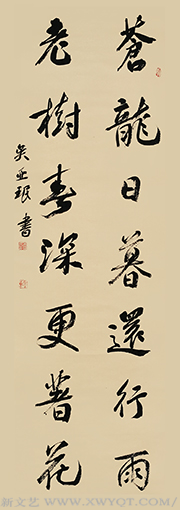 蒼龍日暮還行雨
老樹春深更著花
吳亚珉書
新文艺 WWW.XWYQT.COM/